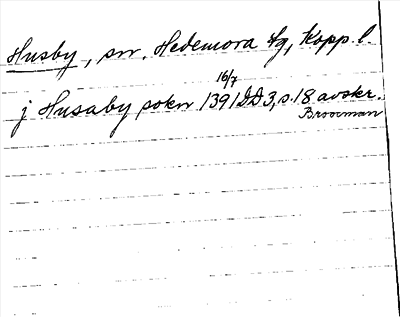 Husby, sn, Hedemora tg, Kopp. l.
16/7
j Husaby sokn 1391 DD 3, s. 18 avskr.
Brocman